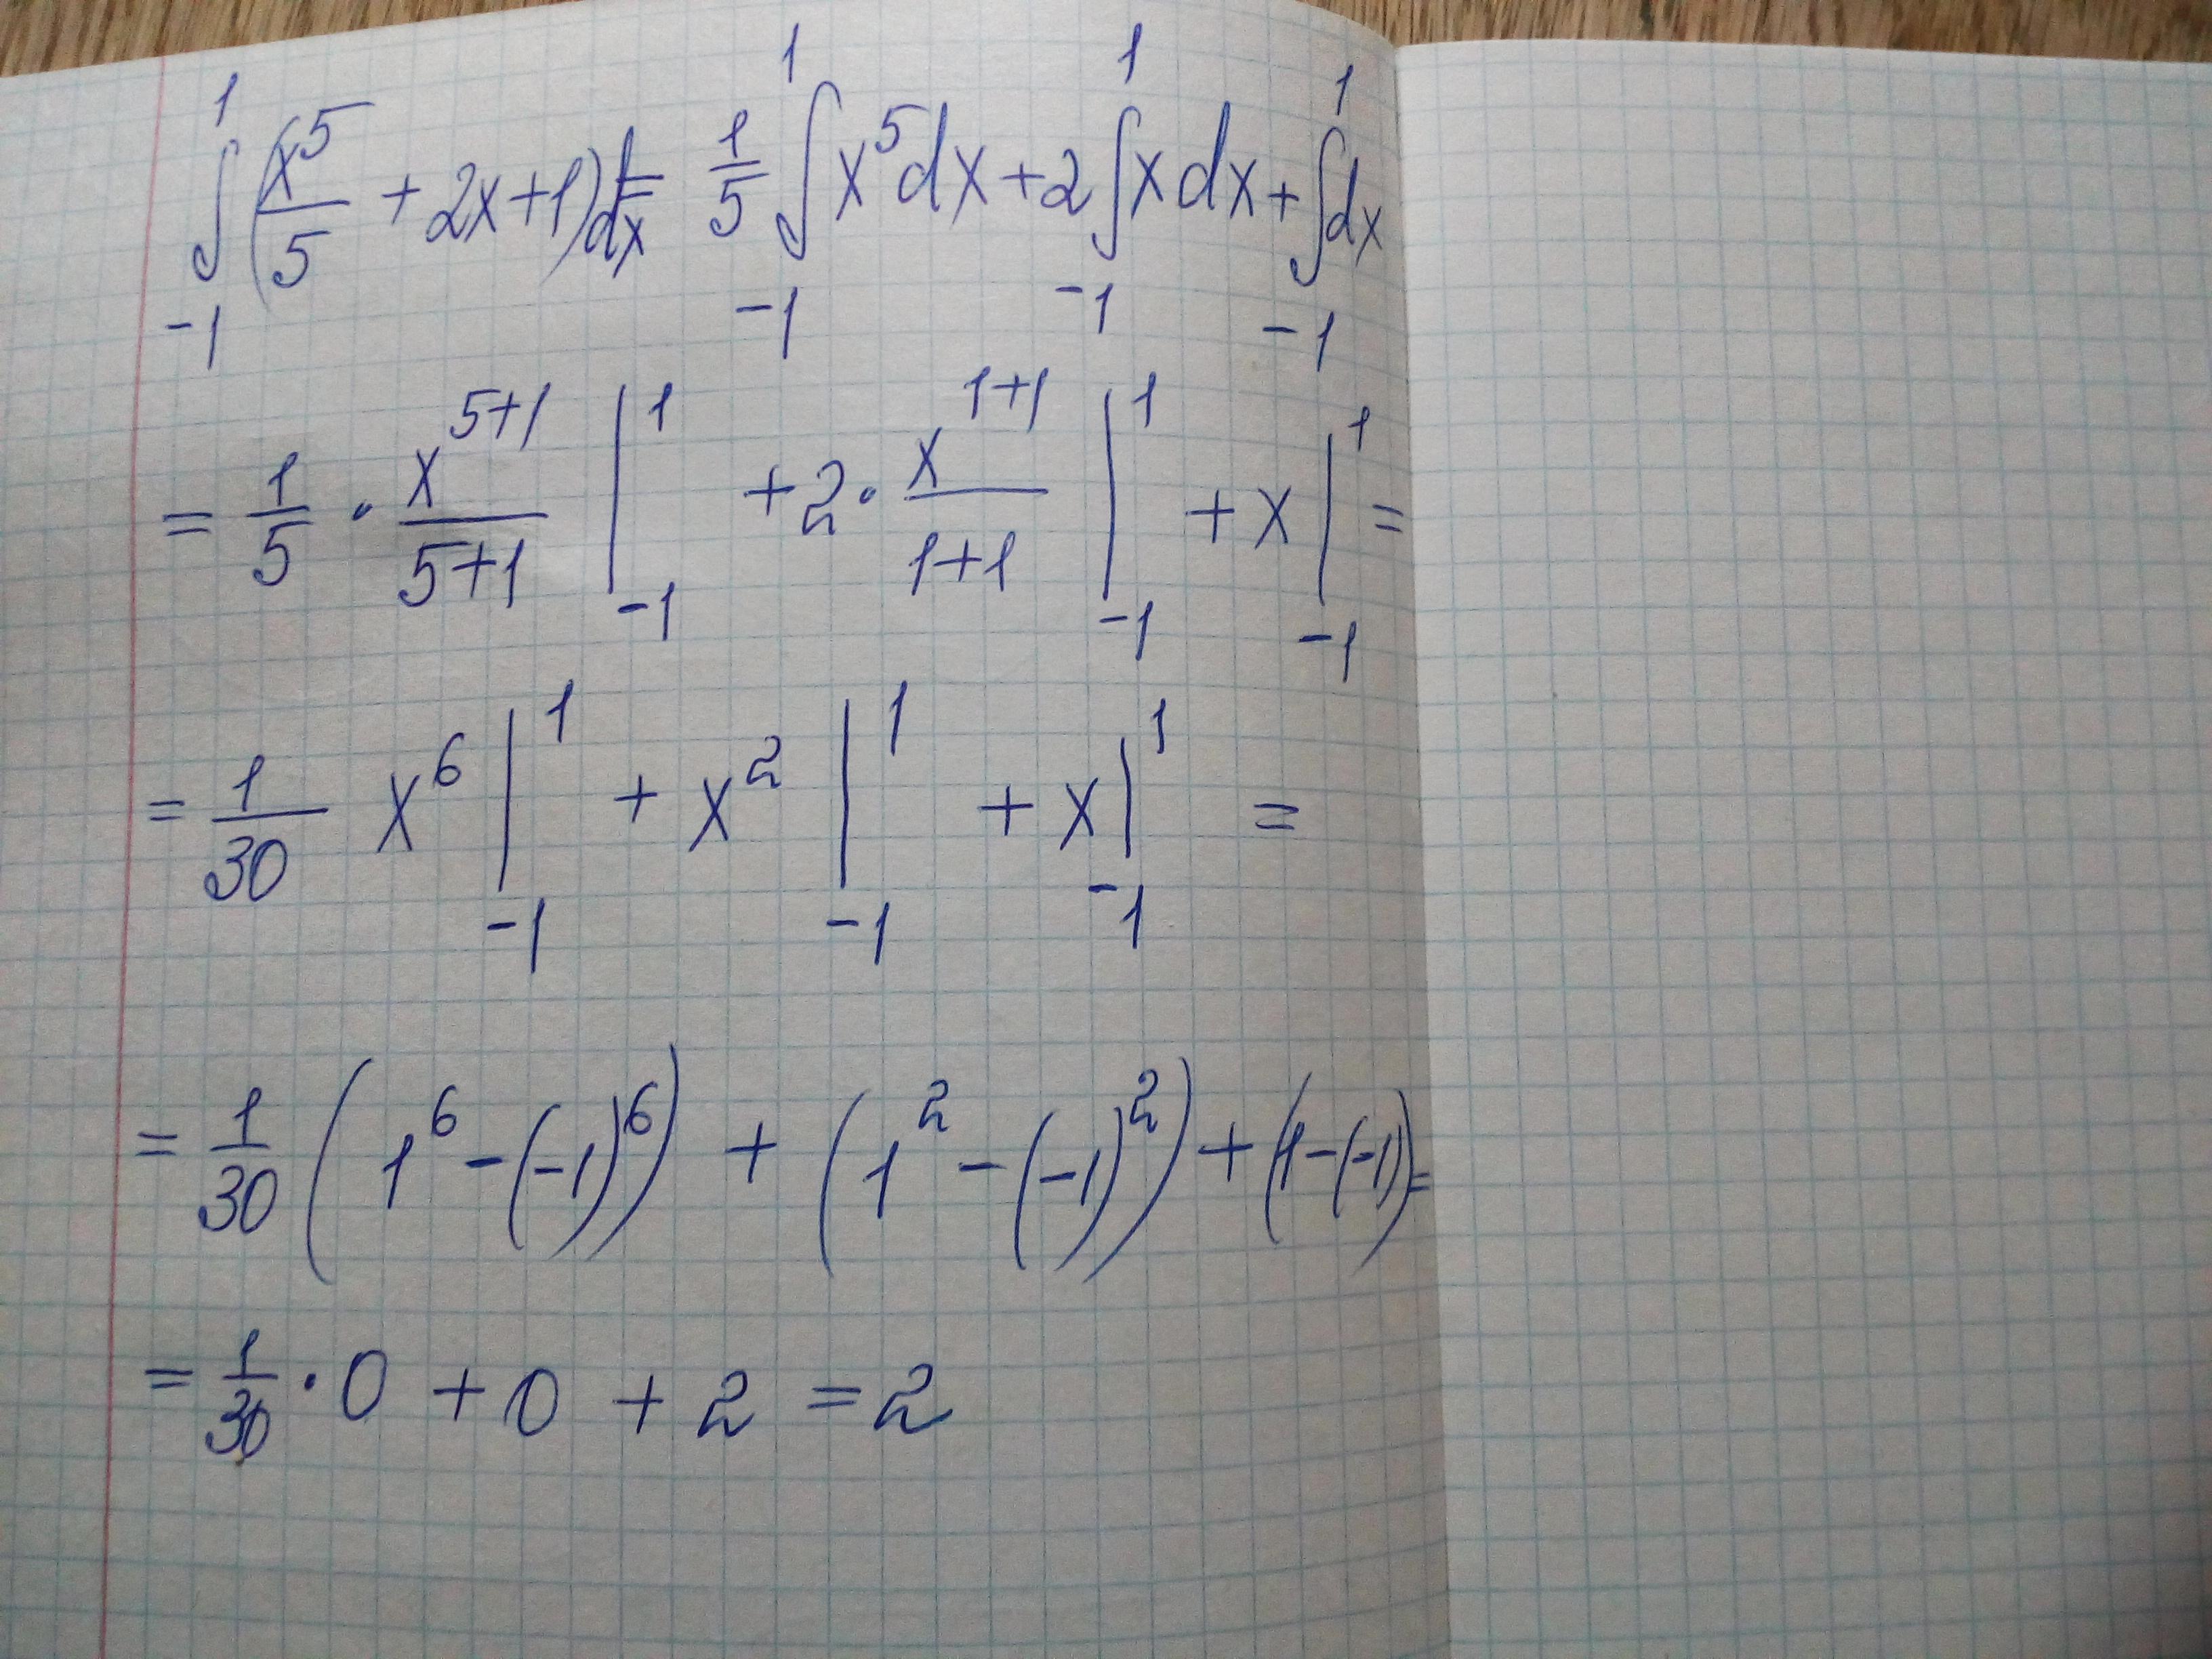 ∫₋₁¹ (x⁵/5 + 2x + 1) dx = 1/5 ∫₋₁¹ x⁵ dx + 2 ∫₋₁¹ x dx + ∫₋₁¹ dx
= 1/5 · x⁵⁺¹/(5+1) |₋₁¹ + 2 · x¹⁺¹/(1+1) |₋₁¹ + x |₋₁¹ =
= 1/30 x⁶ |₋₁¹ + x² |₋₁¹ + x |₋₁¹ =
= 1/30 (1⁶ - (-1)⁶) + (1² - (-1)²) + (1 - (-1)) =
= 1/30 · 0 + 0 + 2 = 2